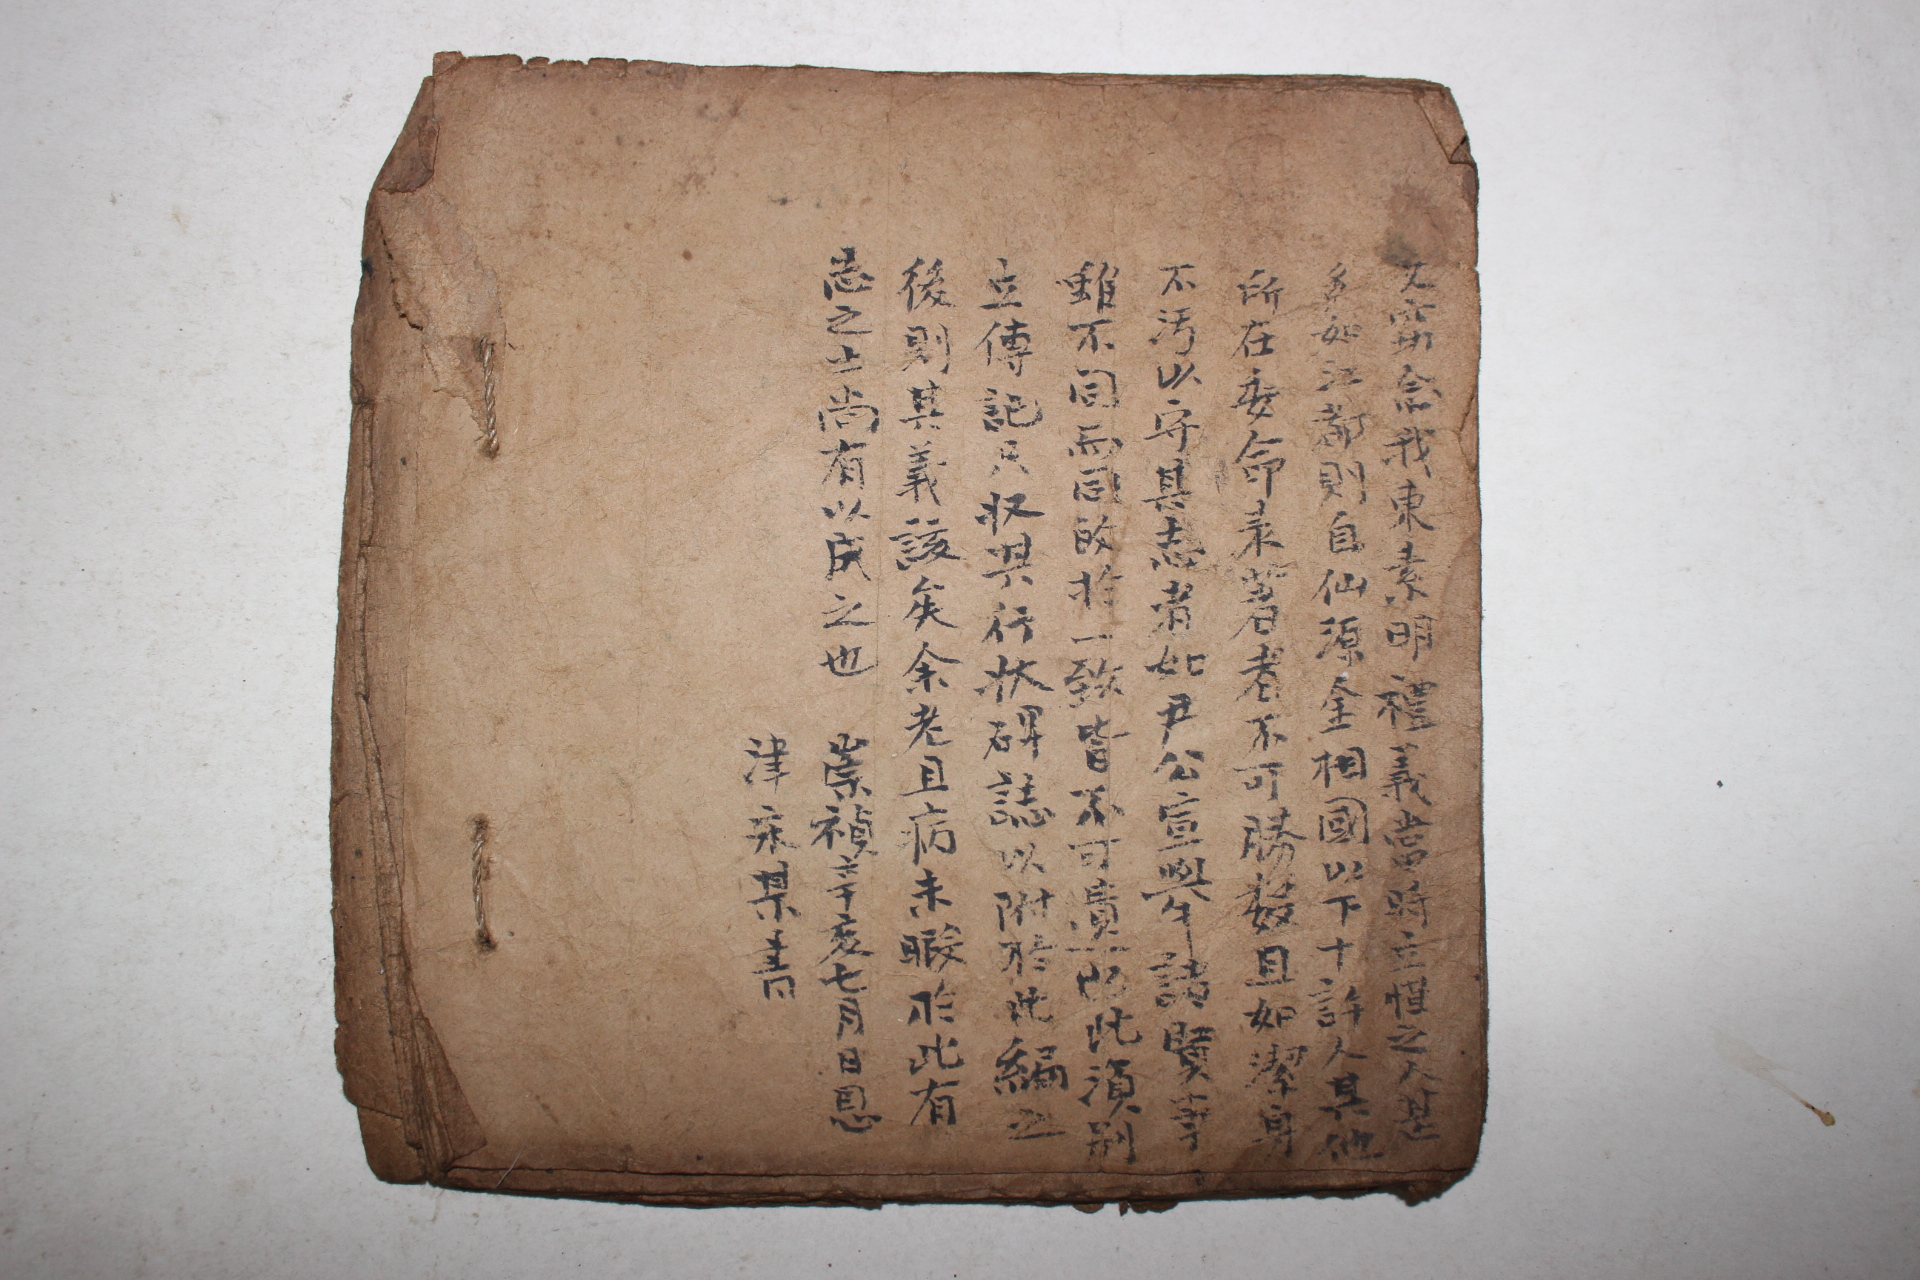 又竊念我東素明禮義當時立慬之人甚
多如江都則自仙源金相國以下十許人其他
所在委命表著者不可勝數且如潔身
不汚以守其志者如尹公宣擧諸賢事
雖不同而同歸於一致皆不可責也此須別
立傳記只收其行狀碑誌以附於此編之
後則其義該矣余老且病未暇於此有
志之士尚有以成之也
崇禎辛亥七月日恩
津宋某書